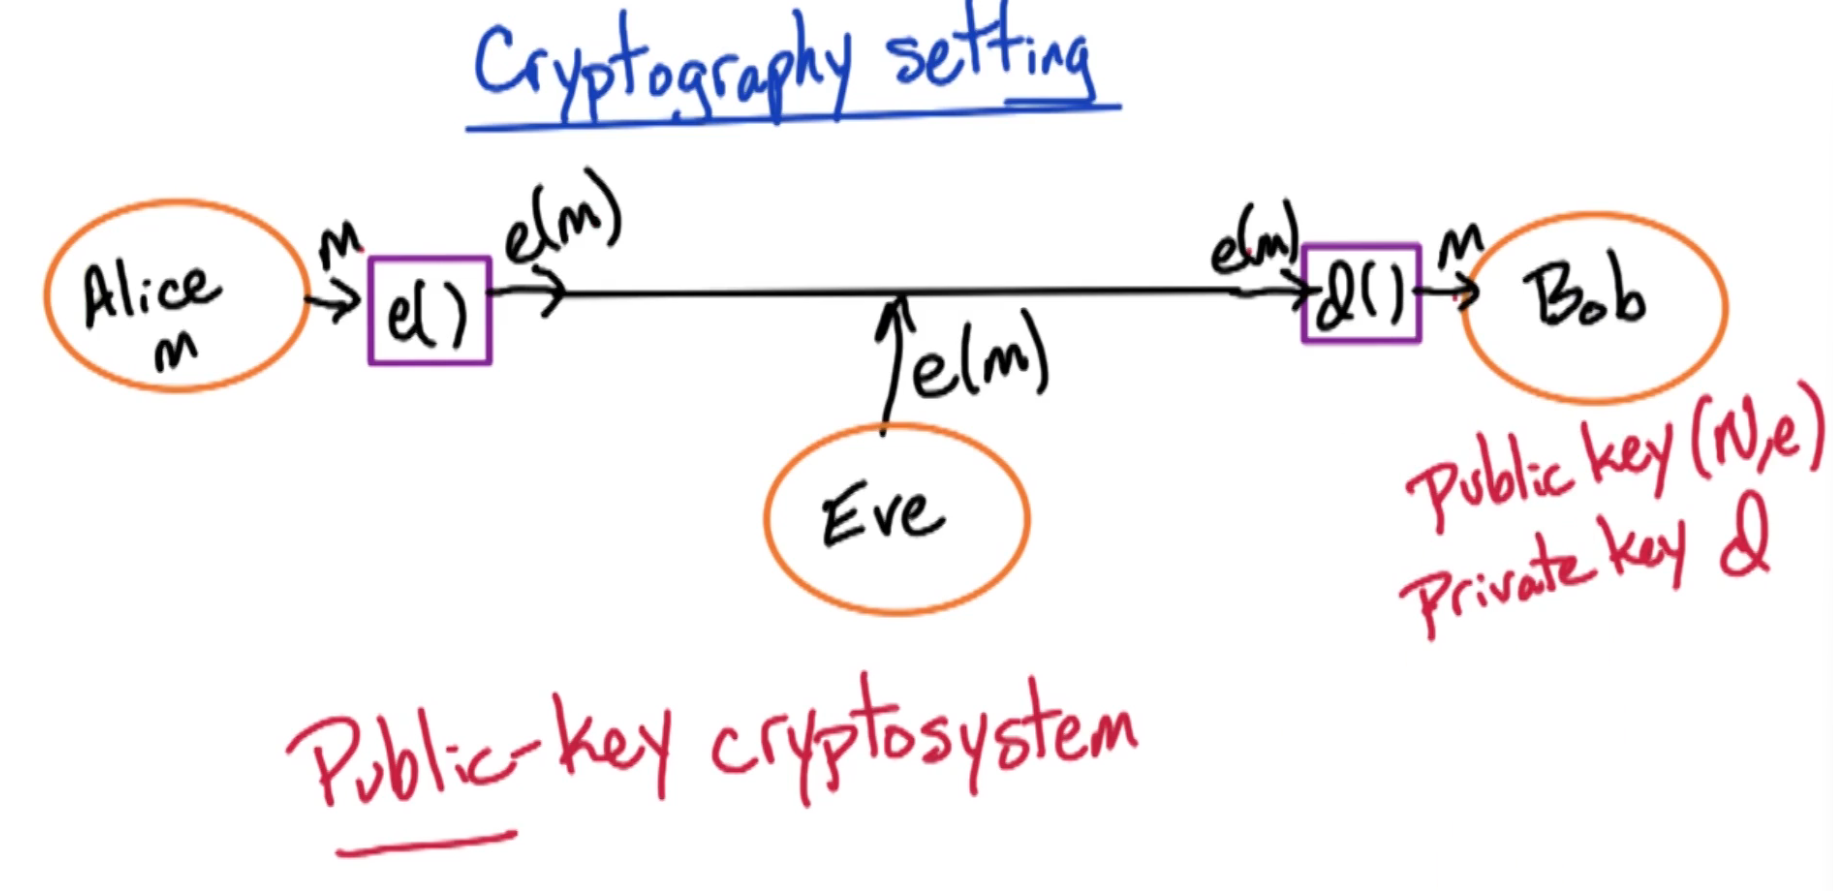 Cryptography setting
e(m)
m
e(m)
m
Alice
m
e()
d()
Bob
e(m)
Eve
Public key (N,e)
Private key d
Public-key cryptosystem